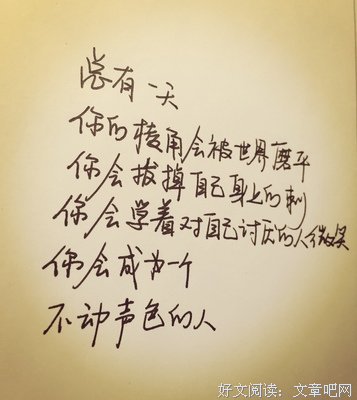 总有一天
你的棱角会被世界磨平
你会拔掉自己身上的刺
你会学着对自己讨厌的人微笑
你会成为一个
不动声色的人
好文阅读：文章吧网